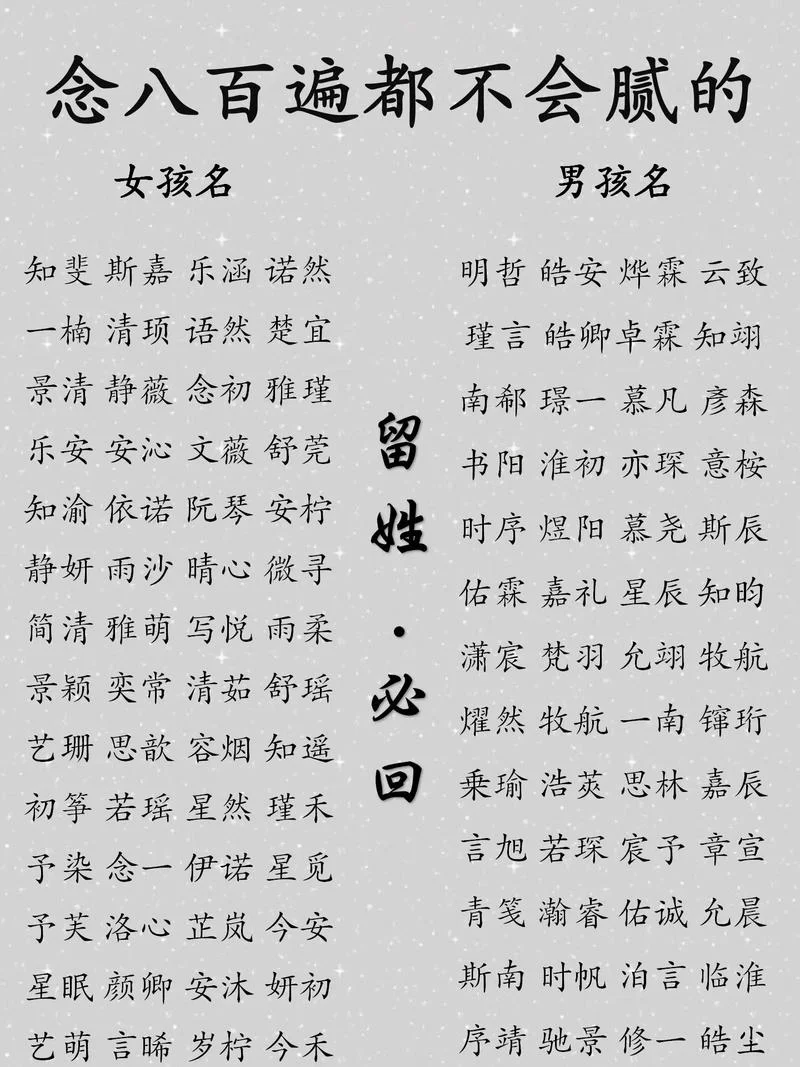 念八百遍都不会腻的
女孩名
知斐 斯嘉 乐涵 诺然
一楠 清顼 语然 楚宜
景清 静薇 念初 雅瑾
乐安 安沁 文薇 舒莞
知渝 依诺 阮琴 安柠
静妍 雨沙 晴心 微寻
简清 雅萌 写悦 雨柔
景颖 奕常 清茹 舒瑶
艺珊 思歆 容烟 知遥
初筝 若瑶 星然 瑾禾
予染 念一 伊诺 星觅
予芙 洛心 芷岚 今安
星眠 颜卿 安沐 妍初
艺萌 言晞 岁柠 今禾
留姓·必回
男孩名
明哲 皓安 烨霖 云致
瑾言 皓卿 卓霖 知翊
南郗 璟一 慕凡 彦森
书阳 淮初 亦琛 意桉
时序 煜阳 慕尧 斯辰
佑霖 嘉礼 星辰 知昀
潇宸 梵羽 允翊 牧航
燿然 牧航 一南 镩珩
乘瑜 浩荧 思林 嘉辰
言旭 若琛 宸予 章宣
青笺 瀚睿 佑诚 允晨
斯南 时帆 泊言 临淮
序靖 驰景 修一 皓尘